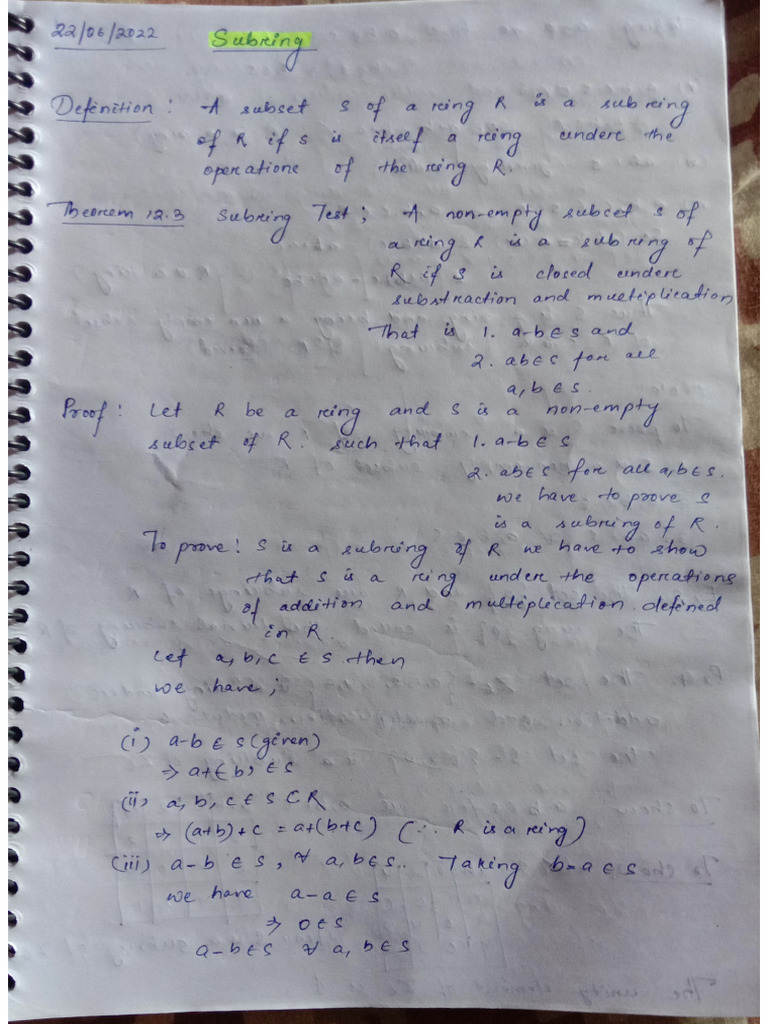 22/06/2022 Subring
Definition: A subset S of a ring R is a subring
of R if S is itself a ring under the
operations of the ring R.
Theorem 12.3 Subring Test; A non-empty subset S of
a ring R is a subring of
R if S is closed under
substraction and multiplication
That is 1. a-b∈S and
2. ab∈S for all
a,b∈S.
Proof: Let R be a ring and S is a non-empty
subset of R. such that 1. a-b∈S
2. ab∈S for all a,b∈S.
we have to prove S
is a subring of R.
To prove: S is a subring of R we have to show
that S is a ring under the operations
of addition and multiplication defined
in R.
Let a,b,c ∈ S then
we have;
(i) a-b∈S (given)
⇒ a+(-b) ∈S
(ii) a,b,c∈S⊂R
⇒ (a+b)+c = a+(b+c) (∵ R is a ring)
(iii) a-b ∈ S, ∀ a,b∈S. Taking b=a∈S
we have a-a∈S
⇒ 0∈S
a-b∈S ∀ a,b∈S